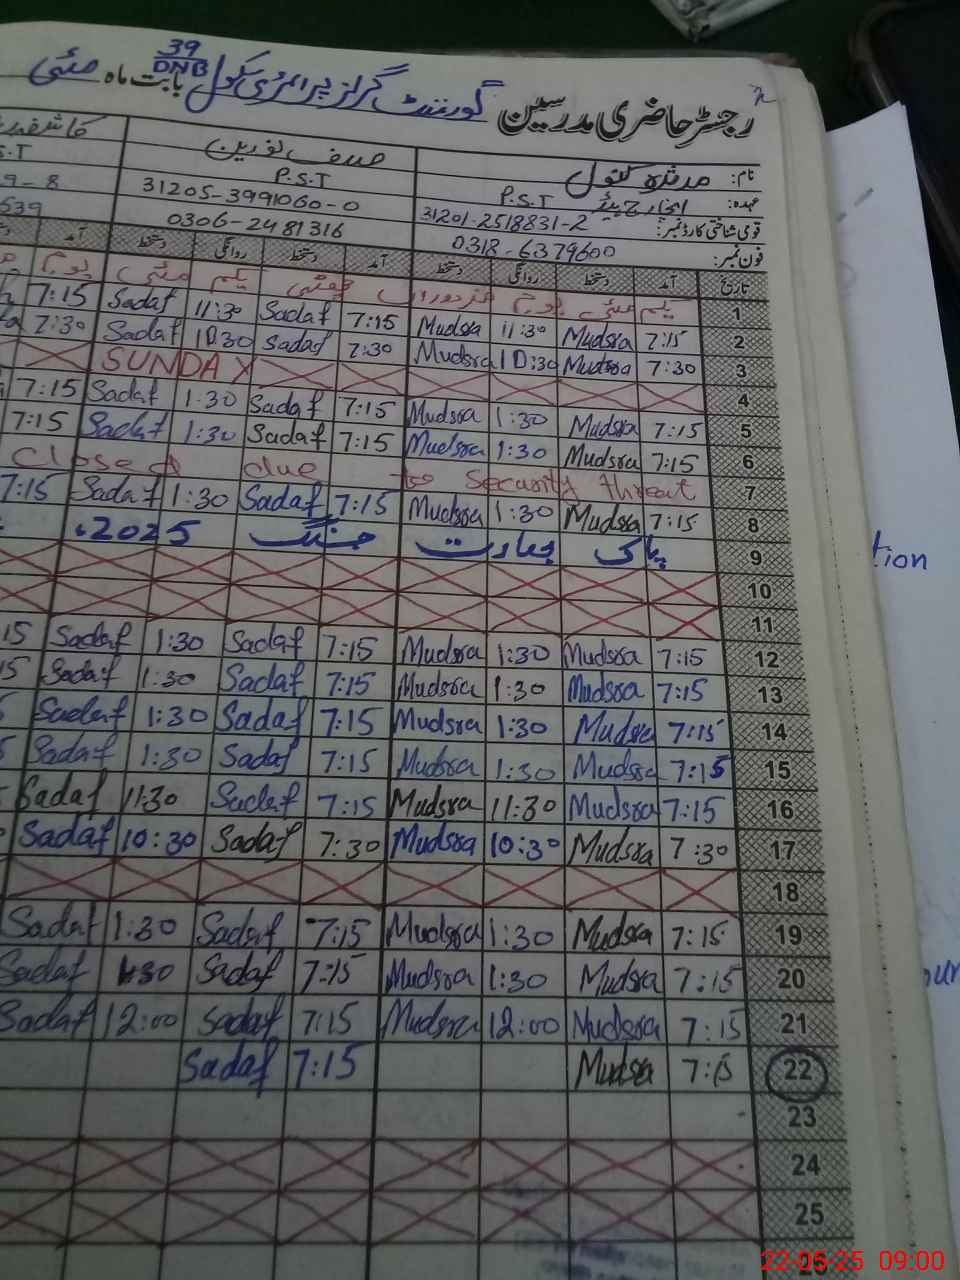 39
DNB
رجسٹر حاضری مدرسین گورنمنٹ گرلز پرائمری سکول بابت ماہ مئی
نام: مدثرہ کنول صدف نورین
عہدہ: انچارج ہیڈ P.S.T P.S.T S.T
قومی شناختی کارڈ نمبر: 31201-2518831-2 31205-3991060-0 9-8
فون نمبر: 0318-6379600 0306-2481316 639
تاریخ آمد دستخط روانگی دستخط آمد دستخط روانگی دستخط آمد
1 یکم مئی یوم مزدوراں چھٹی یکم مئی یوم
2 7:15 Mudsra 11:30 Mudsra 7:15 Sadaf 11:30 Sadaf 7:15
3 7:30 Mudsra 10:30 Mudsra 7:30 Sadaf 10:30 Sadaf 7:30
4 SUNDAY
5 7:15 Mudsra 1:30 Mudsra 7:15 Sadaf 1:30 Sadaf 7:15
6 7:15 Mudsra 1:30 Mudsra 7:15 Sadaf 1:30 Sadaf 7:15
7 Closed due to Security threat
8 7:15 Mudsra 1:30 Mudsra 7:15 Sadaf 1:30 Sadaf 7:15
9 پاک بھارت جنگ 2025ء
10
11
12 7:15 Mudsra 1:30 Mudsra 7:15 Sadaf 1:30 Sadaf 15
13 7:15 Mudsra 1:30 Mudsra 7:15 Sadaf 1:30 Sadaf 15
14 7:15 Mudsra 1:30 Mudsra 7:15 Sadaf 1:30 Sadaf 5
15 7:15 Mudsra 1:30 Mudsra 7:15 Sadaf 1:30 Sadaf 5
16 7:15 Mudsra 11:30 Mudsra 7:15 Sadaf 11:30 Sadaf
17 7:30 Mudsra 10:30 Mudsra 7:30 Sadaf 10:30 Sadaf
18
19 7:15 Mudsra 1:30 Mudsra 7:15 Sadaf 1:30 Sadaf
20 7:15 Mudsra 1:30 Mudsra 7:15 Sadaf 1:30 Sadaf
21 7:15 Mudsra 12:00 Mudsra 7:15 Sadaf 12:00 Sadaf
22 7:15 Mudsra 7:15 Sadaf
23
24
25
tion
22-05-25 09:00